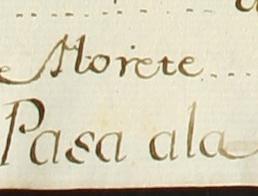 Morete....
Pasa ala